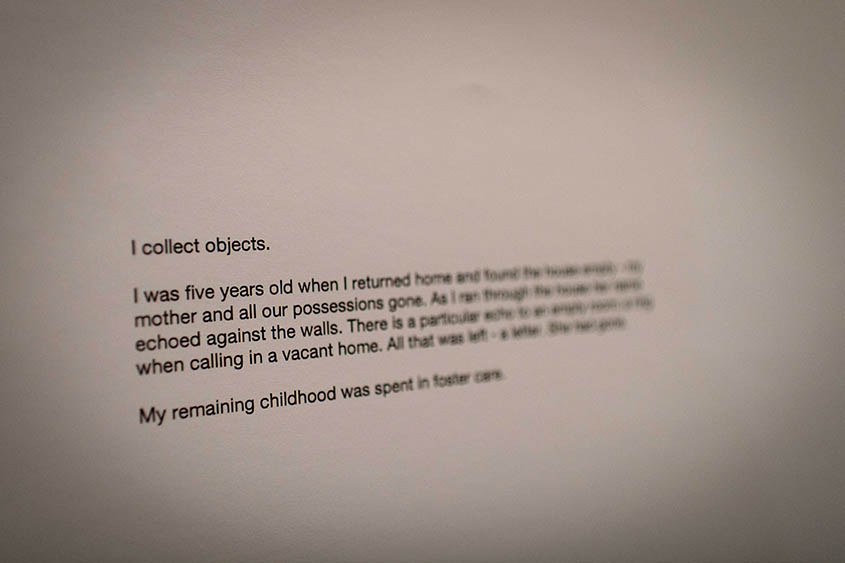 I collect objects.
I was five years old when I returned home and found the house empty - my
mother and all our possessions gone. As I ran through the house her name
echoed against the walls. There is a particular echo to an empty room
when calling in a vacant home. All that was left - a letter. She had gone
My remaining childhood was spent in foster care.